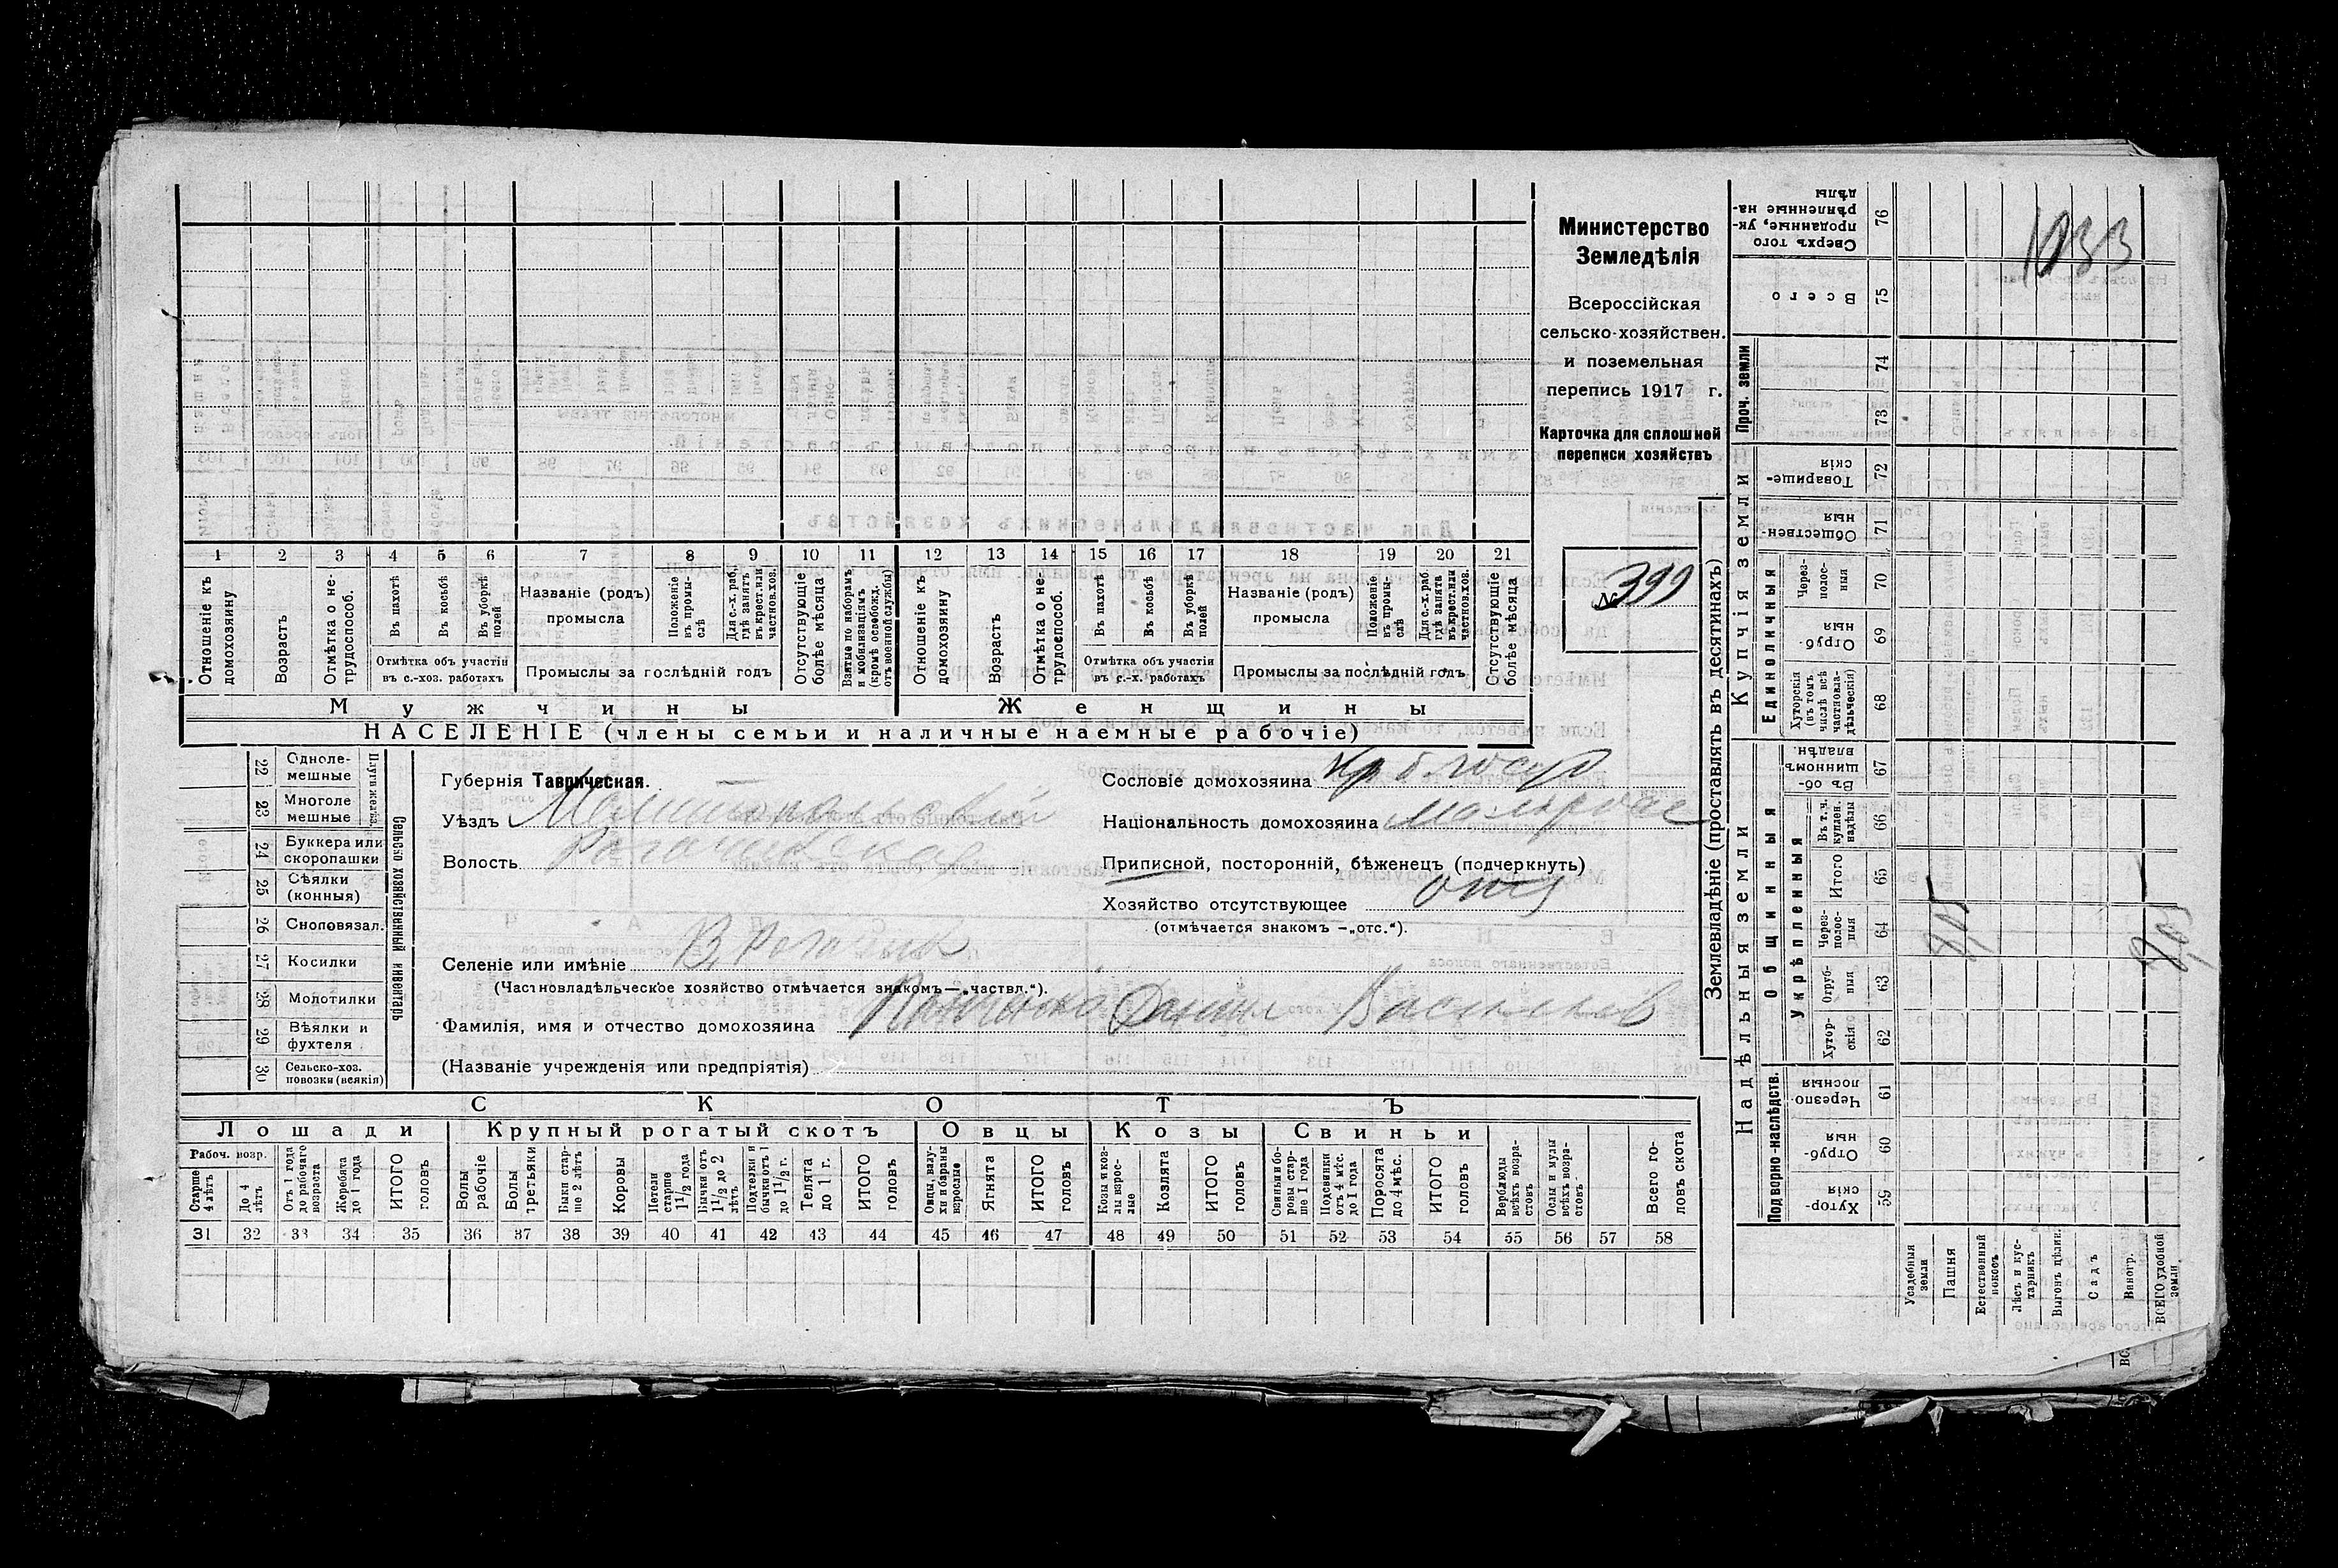 Министерство
Земледѣлія
Всероссійская
сельско-хозяйствен.
и поземельная
перепись 1917 г.
Карточка для сплошной
переписи хозяйствъ
№ 399
1033
1 2 3 4 5 6 7 8 9 10 11 12 13 14 15 16 17 18 19 20 21
Отношеніе къ домохозяину
Возрастъ
Отмѣтка о не-трудоспособ.
Въ пахотѣ
Въ косьбѣ
Въ уборкѣ полей
Отмѣтка объ участіи въ с.-хоз. работахъ
Названіе (родъ) промысла
Положеніе въ промы-слѣ
Для с.-х. раб., гдѣ занятъ въ крест. или частнов. хоз.
Промыслы за послѣдній годъ
Отсутствующіе болѣе мѣсяца
Взятые по наборамъ и мобилизаціямъ (кромѣ освобожд. отъ военной службы)
Отношеніе къ домохозяину
Возрастъ
Отмѣтка о не-трудоспособ.
Въ пахотѣ
Въ косьбѣ
Въ уборкѣ полей
Отмѣтка объ участіи въ с.-х. работахъ
Названіе (родъ) промысла
Положеніе въ промы-слѣ
Для с.-х. раб. гдѣ занята въ крест. или частнов. хоз.
Промыслы за послѣдній годъ
Отсутствующіе болѣе мѣсяца
Мужчины Женщины
НАСЕЛЕНІЕ (члены семьи и наличные наемные рабочіе)
22 Одноле-мешные
23 Многоле мешные
Плуги желѣз.
24 Буккера или скоропашки
25 Сѣялки (конныя)
26 Сноповязал.
27 Косилки
28 Молотилки
29 Вѣялки и фухтеля
30 Сельско-хоз. повозки (всякія)
Сельско хозяйственный инвентарь
Губернія Таврическая.
Уѣздъ Мелитопольскій
Волость Рогачикская
Селеніе или имѣніе В. Рогачик
(Частновладѣльческое хозяйство отмѣчается знакомъ—„частвл.“).
Фамилія, имя и отчество домохозяина Данил Васильев
(Названіе учрежденія или предпріятія)
Сословіе домохозяина Кр б. госуд
Національность домохозяина малорос
Приписной, посторонній, бѣженецъ (подчеркнуть)
Хозяйство отсутствующее отс
(отмѣчается знакомъ —„отс.“).
СКОТЪ
Лошади Крупный рогатый скотъ Овцы Козы Свиньи
Рабоч. возр.
Старше 4 лѣтъ
До 4 лѣтъ
Отъ 1 года до рабочаго возраста
Жеребята до 1 года
ИТОГО головъ
Волы рабочіе
Волы третьяки
Быки стар-ше 2 лѣтъ
Коровы
Нетели старше 1 1/2 года
Бычки отъ 1 1/2 до 2 лѣтъ
Подтелки и бычки отъ 1 до 1 1/2 г.
Телята до 1 г.
ИТОГО головъ
Овцы, валу-хи и бараны взрослые
Ягнята
ИТОГО головъ
Козы и коз-лы взрос-лые
Козлята
ИТОГО головъ
Свиньи и бо-ровы стар-ше 1 года
Подсвинки отъ 4 мѣс. до 1 года
Поросята до 4 мѣс.
ИТОГО головъ
Верблюды всѣхъ возра-стовъ
Ослы и мулы всѣхъ возра-стовъ
Всего го-ловъ скота
31 32 33 34 35 36 37 38 39 40 41 42 43 44 45 46 47 48 49 50 51 52 53 54 55 56 57 58
Землевладѣніе (проставлять въ десятинахъ)
Надѣльныя земли Купчія земли Проч. земли
Подворно-наслѣдств. Общинныя Единоличныя
Укрѣпленныя
Хутор-скія 59
Отруб-ныя 60
Черезпо-лосныя 61
Хутор-скія 62
Отруб-ныя 63
Через-полос-ныя 64
Итого 65
Въ т. ч. куплен. надѣлы 66
Въ об-щинномъ владѣн. 67
Хуторскія (въ томъ числѣ всѣ частновла-дѣльческія) 68
Отруб-ныя 69
Через-полос-ныя 70
Обществен-ныя 71
Товарище-скія 72
73
74
Всего 75
Сверхъ того проданные, ук-рѣпленные на-дѣлы 76
Усадебныя земли
Пашня
Естественный покосъ
Лѣсъ и кус-тарникъ
Выгонъ цѣлик.
Садъ
Виногр.
ВСЕГО удобной земли